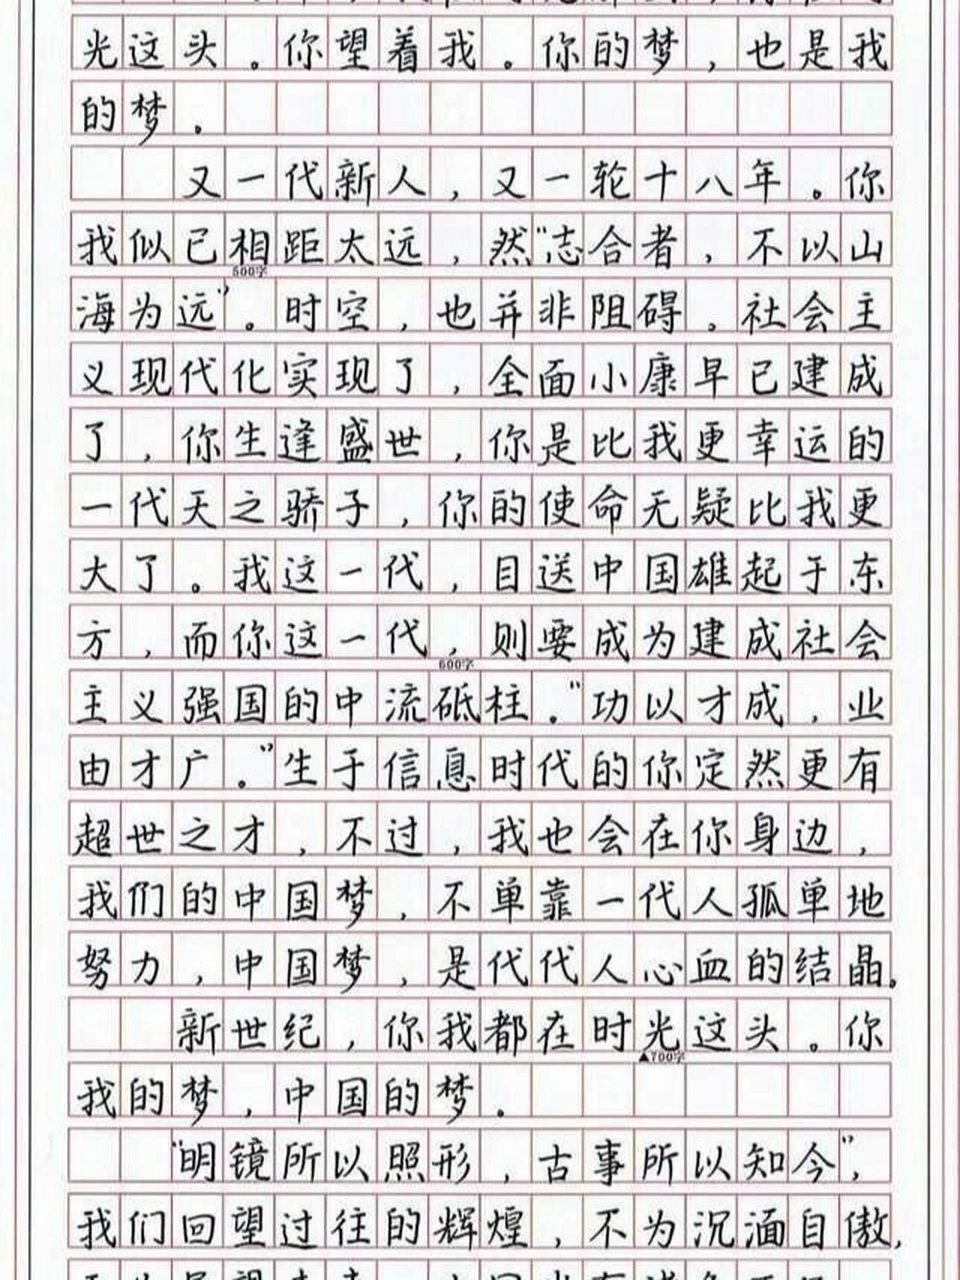 光这头。你望着我。你的梦，也是我
的梦。
又一代新人，又一轮十八年。你
我似已相距太远，然“志合者，不以山
500字
海为远”。时空，也并非阻碍。社会主
义现代化实现了，全面小康早已建成
了，你生逢盛世，你是比我更幸运的
一代天之骄子，你的使命无疑比我更
大了。我这一代，目送中国雄起于东
方，而你这一代，则要成为建成社会
600字
主义强国的中流砥柱。“功以才成，业
由才广。”生于信息时代的你定然更有
超世之才，不过，我也会在你身边，
我们的中国梦，不单靠一代人孤单地
努力，中国梦，是代代人心血的结晶。
新世纪，你我都在时光这头。你
▲700字
我的梦，中国的梦。
“明镜所以照形，古事所以知今”，
我们回望过往的辉煌，不为沉湎自傲，